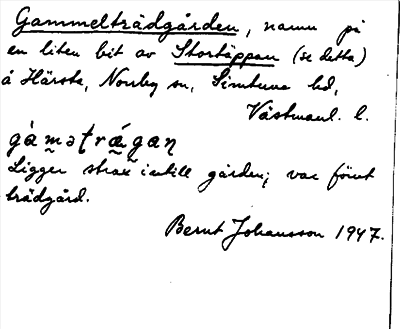 Gammelträdgården, namn på
en liten bit av Stortäppan (se detta)
å Härsta, Norrby sn, Simtuna hd,
Västmanl. l.
gàmətrǽgaņ
Ligger strax intill gården; var förut
trädgård.
Bernt Johansson 1947.